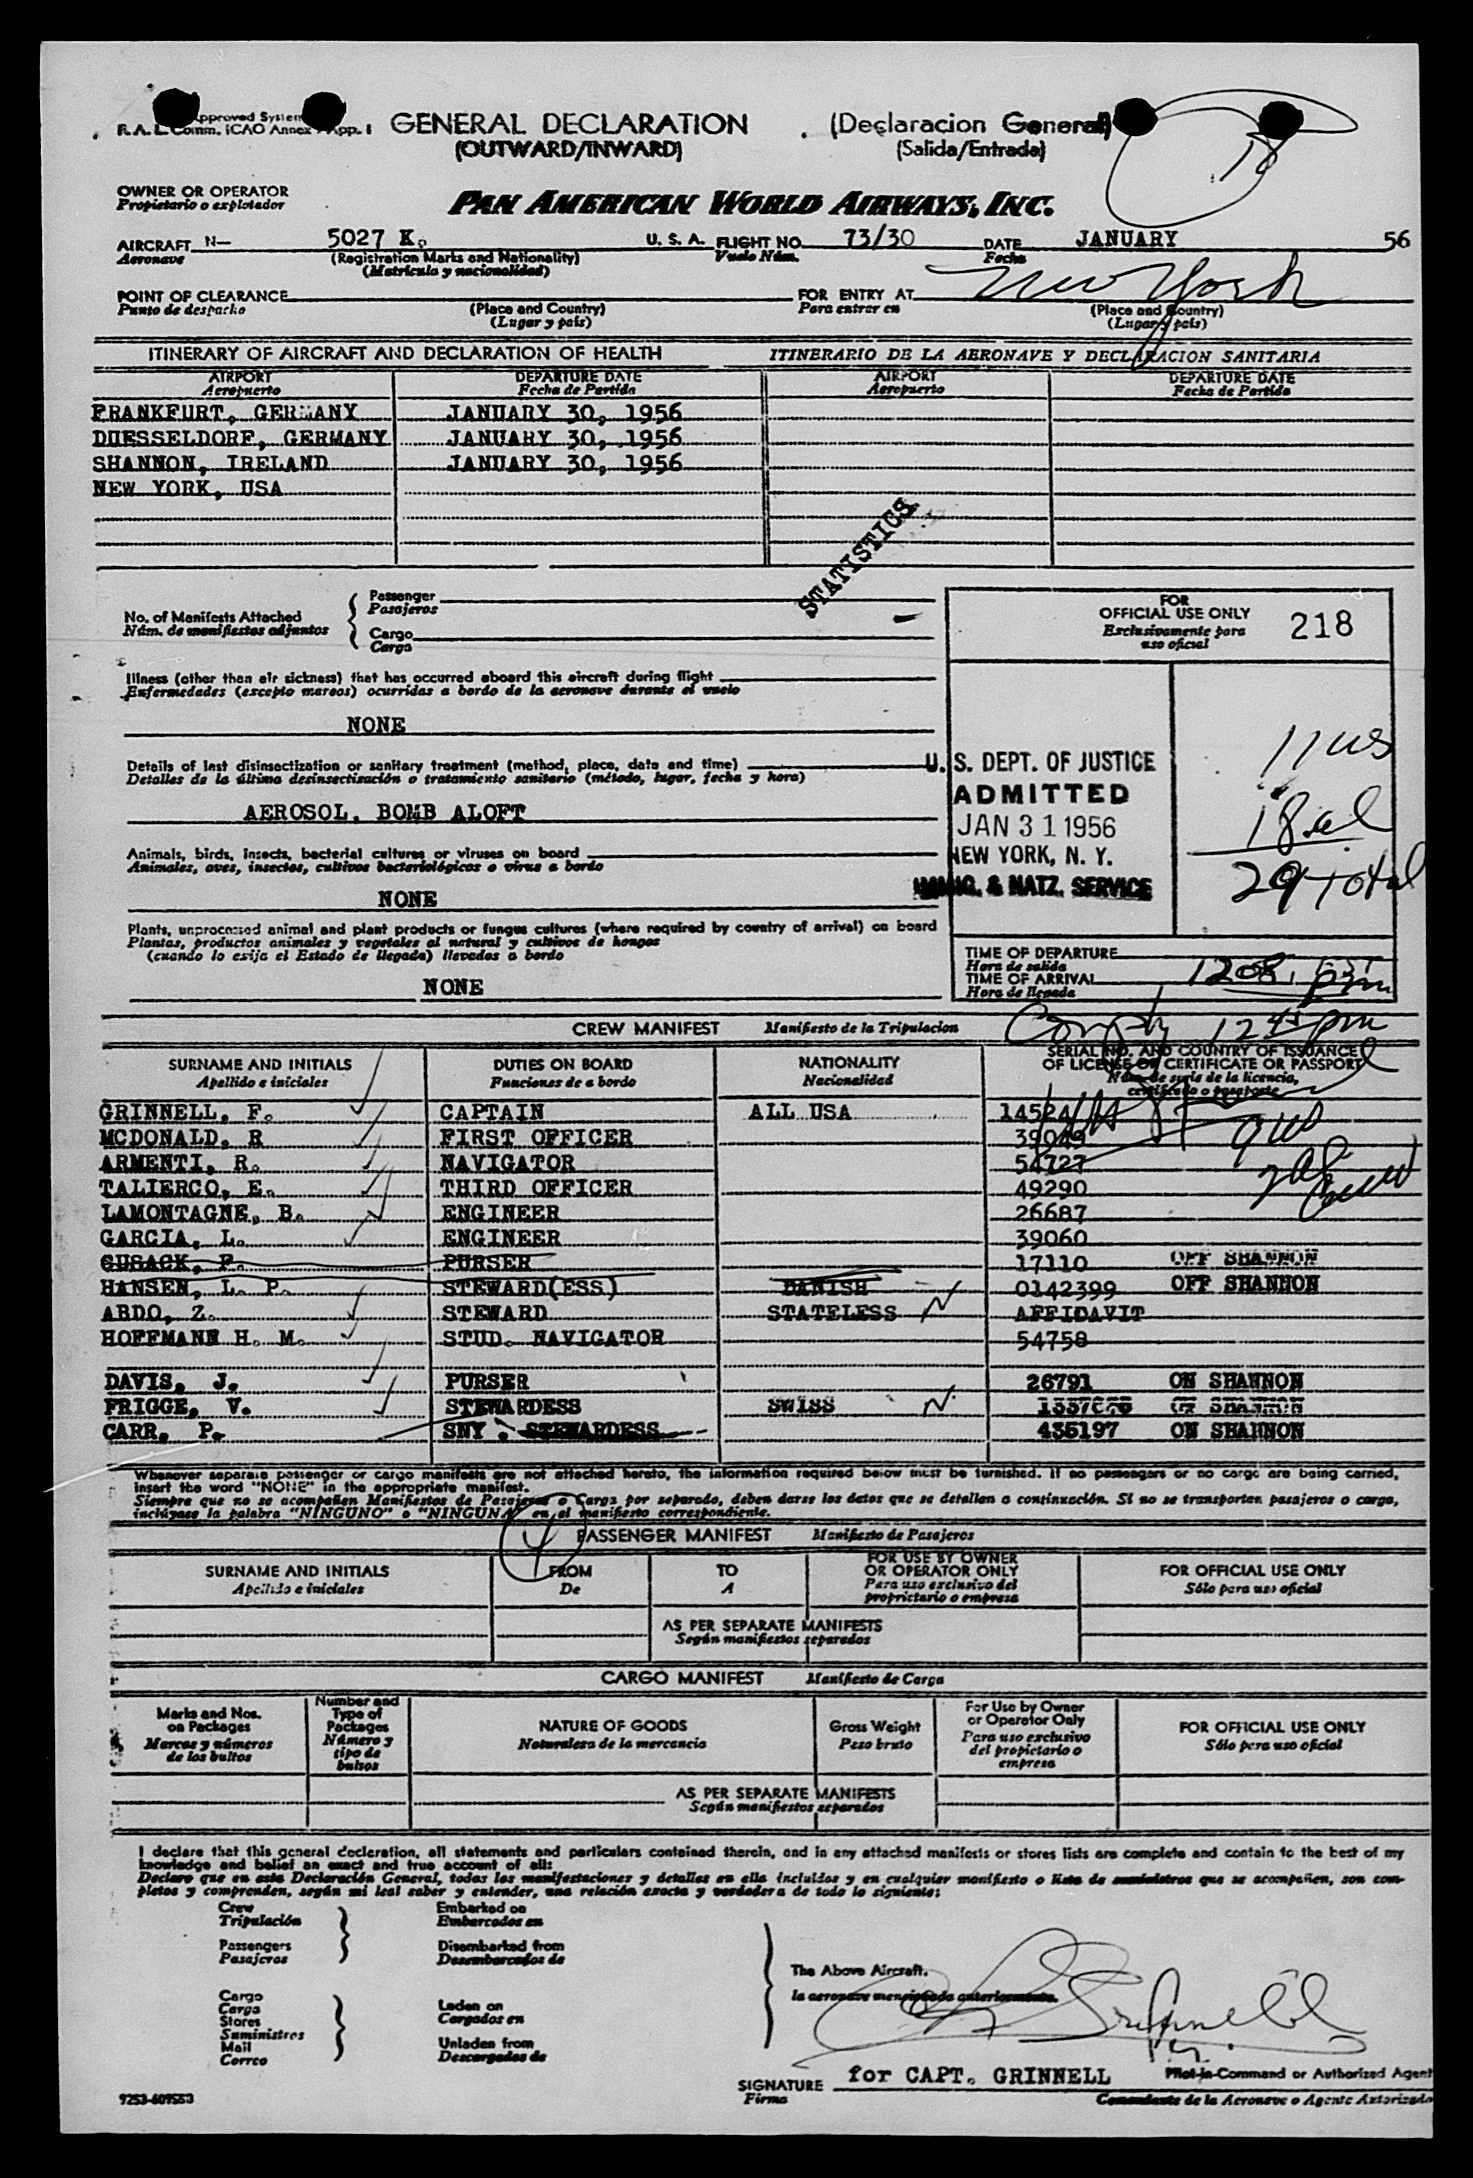 Approved System
F. A. L. Comm. ICAO Annex App. I
GENERAL DECLARATION
(OUTWARD/INWARD)
(Declaracion General)
(Salida/Entrada)
18
OWNER OR OPERATOR
Propietario o explotador
PAN AMERICAN WORLD AIRWAYS, INC.
AIRCRAFT N— 5027 K. U. S. A. FLIGHT NO. 73/30 DATE JANUARY 56
Aeronave (Registration Marks and Nationality) Vuelo Núm. Fecha
(Matricula y nacionalidad)
POINT OF CLEARANCE FOR ENTRY AT New York
Punto de despacho (Place and Country) Para entrar en (Place and Country)
(Lugar y pais) (Lugar y pais)
ITINERARY OF AIRCRAFT AND DECLARATION OF HEALTH ITINERARIO DE LA AERONAVE Y DECLARACION SANITARIA
AIRPORT DEPARTURE DATE AIRPORT DEPARTURE DATE
Aeropuerto Fecha de Partida Aeropuerto Fecha de Partida
FRANKFURT, GERMANY JANUARY 30, 1956
DUESSELDORF, GERMANY JANUARY 30, 1956
SHANNON, IRELAND JANUARY 30, 1956
NEW YORK, USA
STATISTICS
No. of Manifests Attached
Núm. de manifiestos adjuntos
Passenger
Pasajeros
Cargo
Cargo
FOR
OFFICIAL USE ONLY
Exclusivamente para
uso oficial
218
Illness (other than air sickness) that has occurred aboard this aircraft during flight
Enfermedades (excepto mareos) ocurridas a bordo de la aeronave durante el vuelo
NONE
Details of last disinsectization or sanitary treatment (method, place, date and time)
Detalles de la última desinsectisación o tratamiento sanitario (método, lugar, fecha y hora)
AEROSOL. BOMB ALOFT
Animals, birds, insects, bacterial cultures or viruses on board
Animales, aves, insectos, cultivos bacteriológicos o virus a bordo
NONE
Plants, unprocessed animal and plant products or fungus cultures (where required by country of arrival) on board
Plantas, productos animales y vegetales al natural y cultivos de hongos
(cuando lo exija el Estado de llegada) llevados a bordo
NONE
U. S. DEPT. OF JUSTICE
ADMITTED
JAN 31 1956
NEW YORK, N. Y.
IMMIG. & NATZ. SERVICE
11 us
18 al
29 Total
TIME OF DEPARTURE
Hora de salida
TIME OF ARRIVAL 1208 pm
Hora de llegada
CREW MANIFEST Manifiesto de la Tripulacion
SURNAME AND INITIALS DUTIES ON BOARD NATIONALITY SERIAL NO. AND COUNTRY OF ISSUANCE
Apellido e iniciales Funciones de a bordo Nacionalidad OF LICENSE OR CERTIFICATE OR PASSPORT
Núm. de serie de la licencia,
certificado o pasaporte
GRINNELL, F. CAPTAIN ALL USA 14524
MCDONALD, R FIRST OFFICER 39049
ARMENTI, R. NAVIGATOR 54727
TALIERCO, E. THIRD OFFICER 49290
LAMONTAGNE, B. ENGINEER 26687
GARCIA, L. ENGINEER 39060
CUSACK, F. PURSER 17110 OFF SHANNON
HANSEN, L. P. STEWARD(ESS) DANISH 0142399 OFF SHANNON
ABDO, Z. STEWARD STATELESS AFFIDAVIT
HOFFMANN H. M. STUD. NAVIGATOR 54758
DAVIS, J. PURSER 26791 ON SHANNON
FRIGGE, V. STEWARDESS SWISS ON SHANNON
CARR, P. SNY . STEWARDESS 435197 ON SHANNON
Whenever separate passenger or cargo manifests are not attached hereto, the information required below must be furnished. If no passengers or no cargo are being carried,
insert the word "NONE" in the appropriate manifest.
Siempre que no se acompañen Manifiestos de Pasajeros o Carga por separado, deben darse los datos que se detallan a continuación. Si no se transportan pasajeros o carga,
inclúyase la palabra "NINGUNO" o "NINGUNA" en el manifiesto correspondiente.
4
PASSENGER MANIFEST Manifiesto de Pasajeros
SURNAME AND INITIALS FROM TO FOR USE BY OWNER FOR OFFICIAL USE ONLY
Apellido e iniciales De A OR OPERATOR ONLY Sólo para uso oficial
Para uso exclusivo del
proprietario o empresa
AS PER SEPARATE MANIFESTS
Según manifiestos separados
CARGO MANIFEST Manifiesto de Carga
Marks and Nos.
on Packages
Marcas y números
de los bultos
Number and
Type of
Packages
Número y
tipo de
bultos
NATURE OF GOODS
Naturaleza de la mercancia
Gross Weight
Peso bruto
For Use by Owner
or Operator Only
Para uso exclusivo
del propietario o
empresa
FOR OFFICIAL USE ONLY
Sólo para uso oficial
AS PER SEPARATE MANIFESTS
Según manifiestos separados
I declare that this general declaration, all statements and particulars contained therein, and in any attached manifests or stores lists are complete and contain to the best of my
knowledge and belief an exact and true account of all:
Declaro que en esta Declaración General, todas las manifestaciones y detalles en ella incluidos y en cualquier manifiesto o lista de suministros que se acompañen, son com-
pletos y comprenden, según mi leal saber y entender, una relación exacta y verdadera de todo lo siguiente:
Crew
Tripulación
Passengers
Pasajeros
Embarked on
Embarcados en
Disembarked from
Desembarcados de
Cargo
Carga
Stores
Suministros
Mail
Correo
Laden on
Cargados en
Unladen from
Descargados de
The Above Aircraft.
la aeronave mencionada anteriormente.
SIGNATURE for CAPT. GRINNELL Pilot-in-Command or Authorized Agent
Firma Comandante de la Aeronave o Agente Autorizado
9253-609553